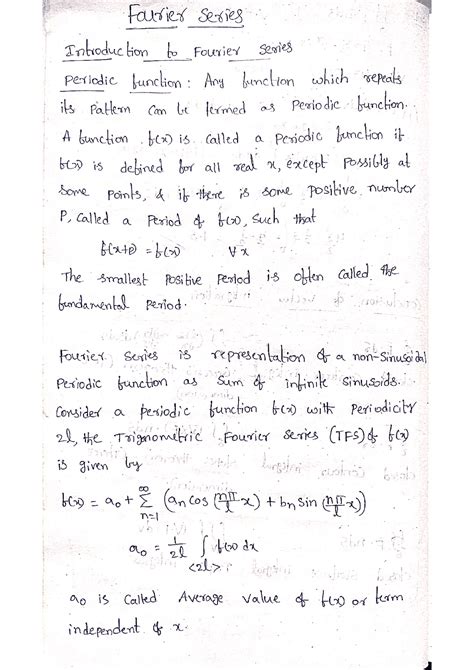 Fourier Series
Introduction to Fourier Series
Periodic function: Any function which repeats
its Pattern can be termed as Periodic function.
A function f(x) is called a periodic function if
f(x) is defined for all real x, except possibly at
some points, & if there is some positive number
P, called a Period of f(x), such that
f(x+p) = f(x) ∀x
The smallest positive period is often called the
fundamental period.
Fourier series is representation of a non-Sinusoidal
Periodic function as Sum of infinite Sinusoids.
Consider a periodic function f(x) with Periodicity
2l, the Trignometric Fourier series (TFS) of f(x)
is given by
f(x) = a₀ + ∞∑n=1 (an cos (nπ/l x) + bn sin (nπ/l x))
a₀ = 1/2l ∫<2l> f(x) dx
a₀ is called Average value of f(x) or term
independent of x.